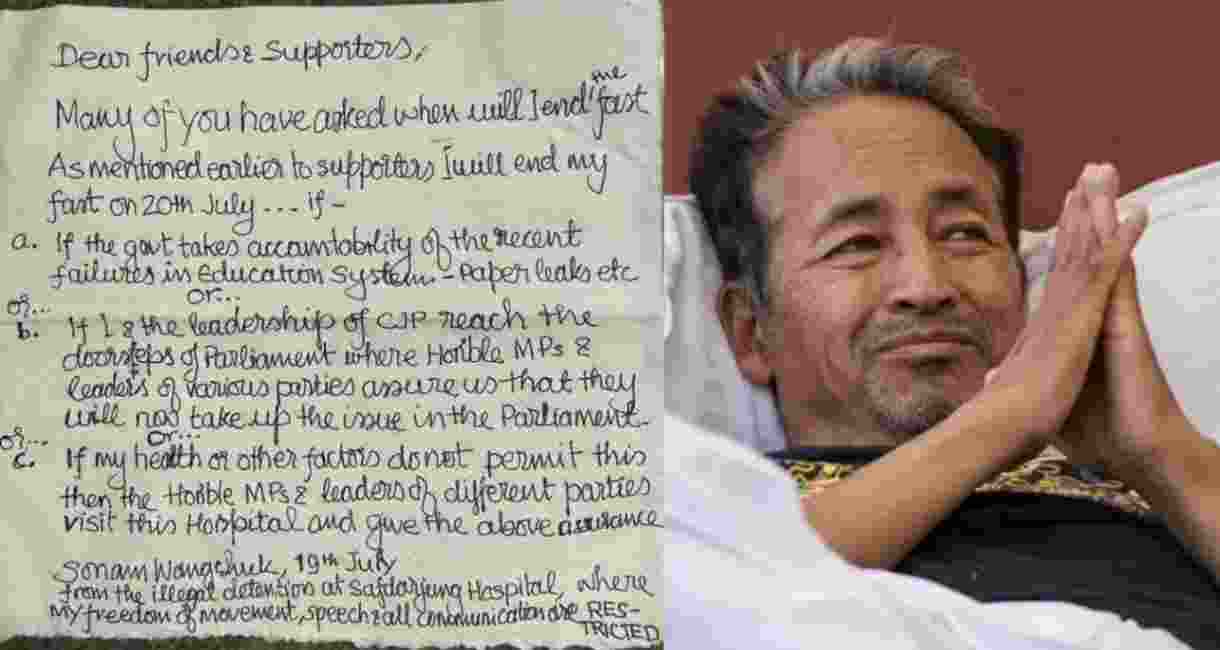 Dear friends & Supporters,
me
Many of you have asked when will I end fast
As mentioned earlier to supporters I will end my
fast on 20th July ... if -
a. If the govt takes accountability of the recent
failures in education system. - Paper leaks etc
or...
or...
b. If I & the leadership of CJP reach the
doorsteps of Parliament where Hon'ble MPs &
leaders of various parties assure us that they
will now take up the issue in the Parliament.
or...
or...
c. If my health or other factors do not permit this
then the Hon'ble MPs & leaders of different parties
visit this Hospital and give the above assurance
Sonam Wangchuk, 19th July
from the illegal detention at Safdarjung Hospital, where
My freedom of movement, speech & all communication are RES-
TRICTED